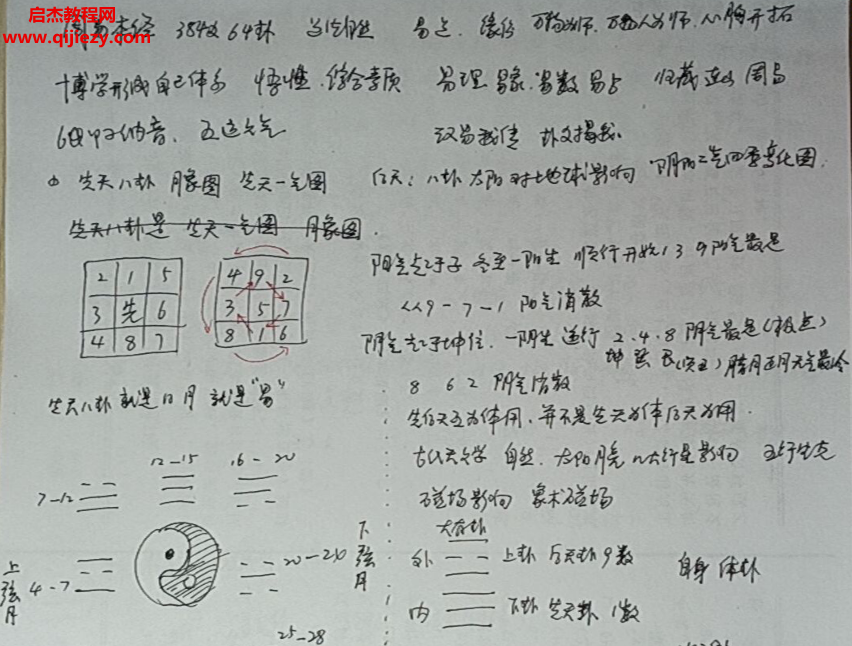 启杰教程网
www.qijiezy.com
周易本经 384爻 64卦 当信自然 易占、缘份 万物为师、万人为师、心胸开拓
博学形成自己体系 悟性、综合素质 易理 易象、易数 易占 归藏 连山 周易
60甲子纳音、五运六气 汉易我信 卦爻揭我
先天八卦 月象图 先天一气图 后天:八卦 太阳对地球影响 阴阳二气四季变化图
先天八卦是 先天一气图 月象图
阳气点于子 冬至一阳生 顺行开始 1 3 9 阳气最足
2 1 5
3 先 6
4 8 7
4 9 2
3 5 7
8 1 6
9-7-1 阳气消散
阴气 于坤位、一阴生 逆行 2、4、8 阴气最足(极点)
坤 巽 艮 腊月正月天气最冷
8 6 2 阴气消散
先天八卦 就是 日月 就是“易”
先后天互为体用、并不是先天为体后天为用
古代天文学 自然、太阳月亮 八大行星影响 五行生克
磁场影响 象术磁场
12-15
16-20
7-12
大有卦
外 上卦 后天卦 9数
自身 体卦
下弦月
20-20
上弦月
4-7
内 下卦 先天卦 1数
25-28